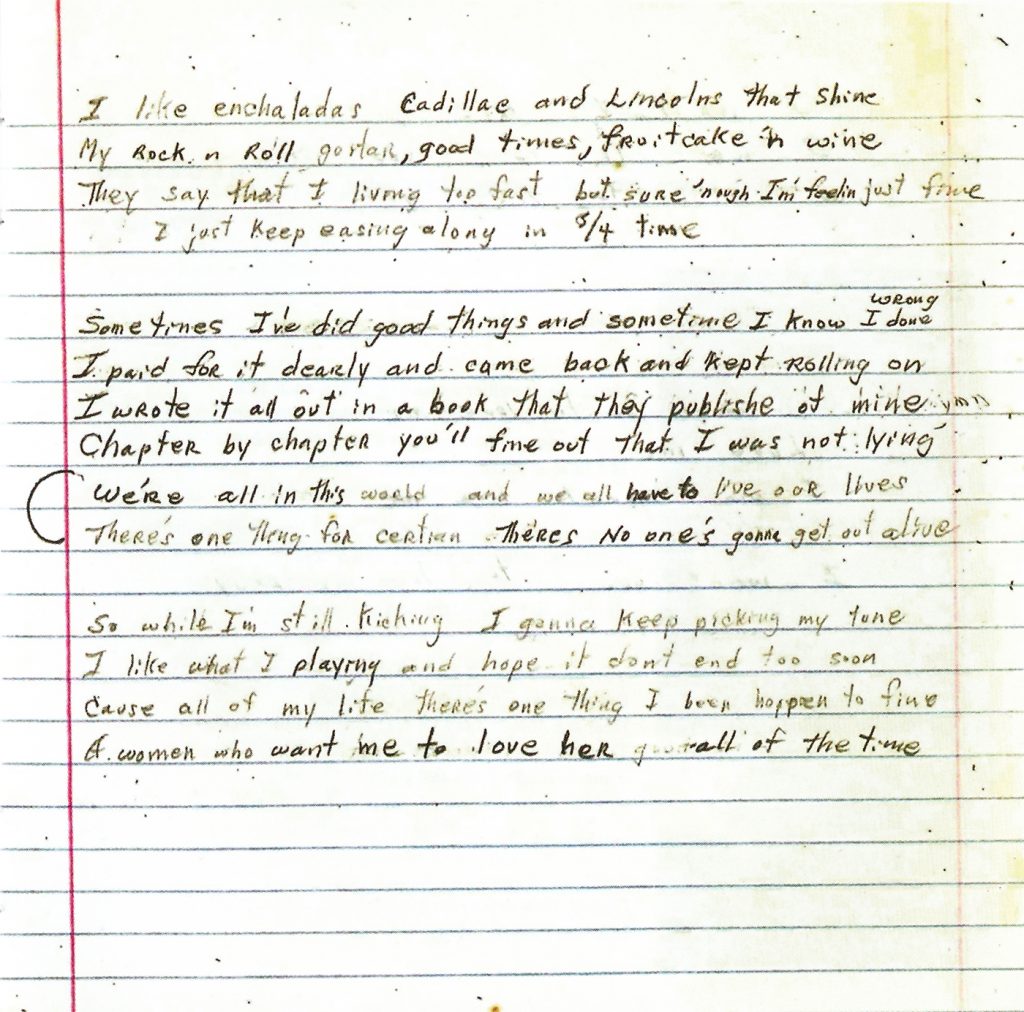 I like enchaladas Cadillac and Lincolns that shine
My Rock n Roll gortar, good times, frootcake 'n wine
They say that I living too fast but sure 'nough I'm feelin just fine
I just keep easing along in 5/4 time
Sometimes I've did good things and sometime I know I done wrong
I paid for it dearly and came back and kept Rolling on
I wrote it all out in a book that they publishe of mine
Chapter by chapter you'll fine out that I was not lying
We're all in this world and we all have to live our lives
There's one thing for certian Theres No one's gonna get out alive
So while I'm still kicking I gonna keep picking my tune
I like what I playing and hope it don't end too soon
Cause all of my life there's one thing I been hoppen to fine
A women who want me to love her all of the time